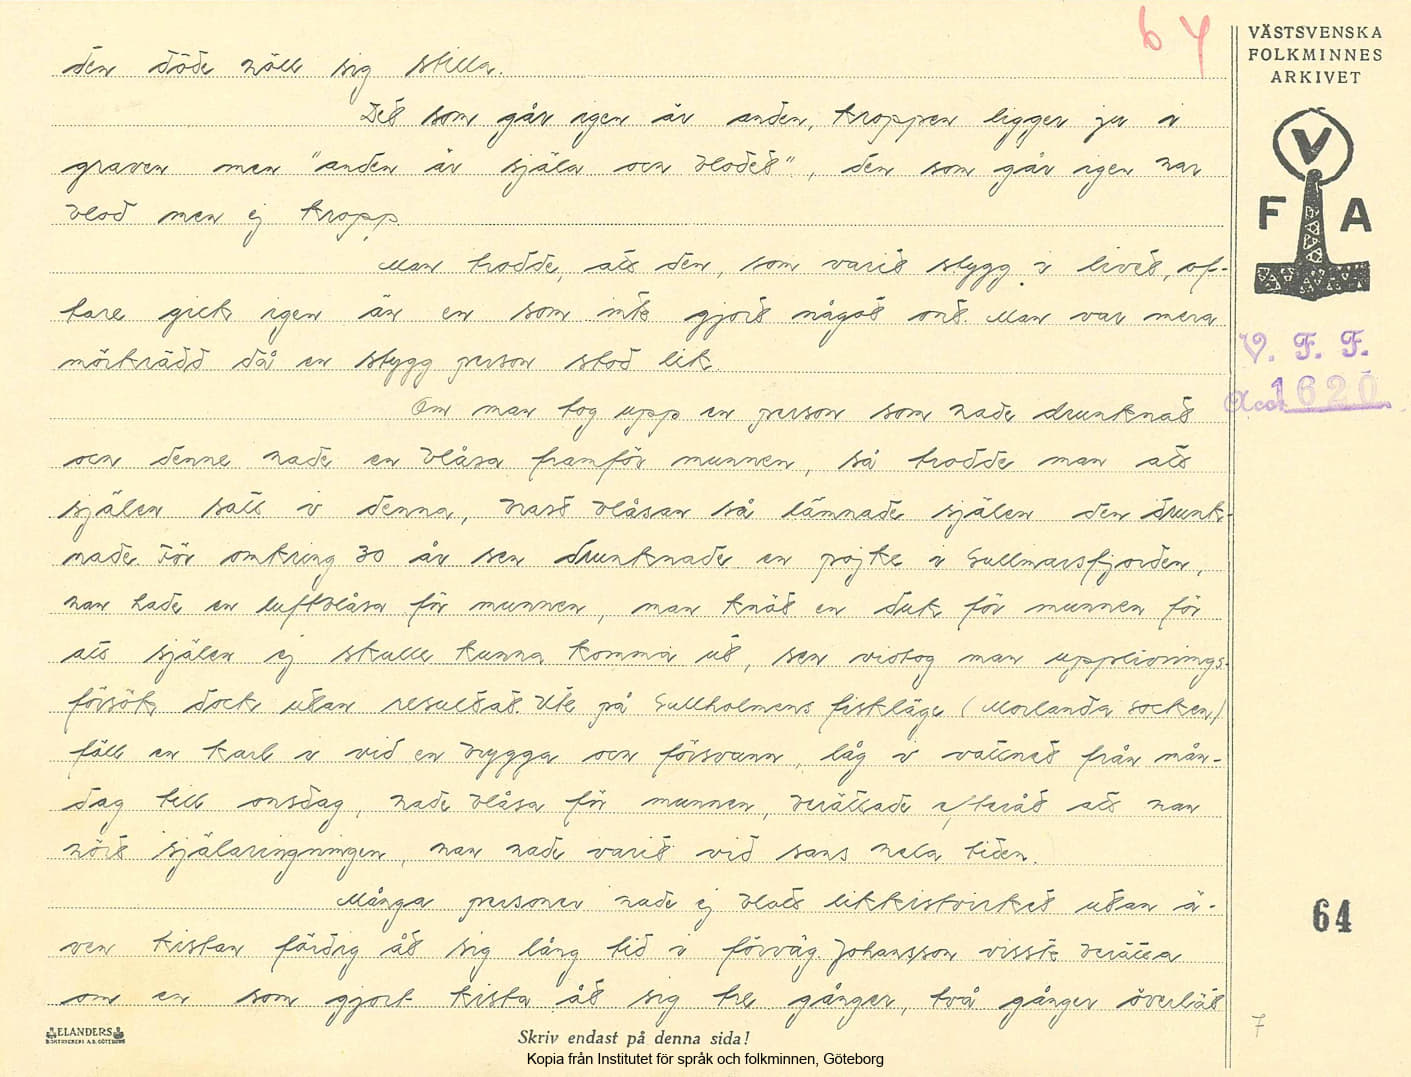 64
VÄSTSVENSKA
FOLKMINNES
ARKIVET
V
F A
V. F. F.
Acc. 1620
den döde höll sig stilla.
Det som går igen är anden, kroppen ligger ju i
graven men "anden är själa och blodet", den som går igen har
blod men ej kropp.
Man trodde, att den, som varit stygg i livet, of-
tare gick igen än en som inte gjort något ont. Man var mera
mörkrädd då en stygg person stod lik.
Om man tog upp en person som hade drunknat
och denne hade en blåsa framför munnen, så trodde man att
själen satt i denna, brast blåsan så lämnade själen den drunk-
nade. För omkring 30 år sen drunknade en pojke i Gullmarsfjorden,
han hade en luftblåsa för munnen, man knöt en duk för munnen för
att själen ej skulle kunna komma ut, sen vidtog man upplivnings-
försök dock utan resultat. Ute på Gullholmens fiskläge (Morlanda socken)
föll en karl i vid en brygga och försvann, låg i vattnet från mån-
dag till onsdag, hade blåsa för munnen, berättade efteråt att han
hört själaringningen, han hade varit vid sans hela tiden.
Många personer hade ej blott likkistvirket utan ä-
ven kistan färdig åt sig lång tid i förväg. Johansson visste berätta
om en som gjort kista åt sig tre gånger, två gånger överlät
64
7
ELANDERS
BOKTRYCKERI A.B. GÖTEBORG
Skriv endast på denna sida!
Kopia från Institutet för språk och folkminnen, Göteborg